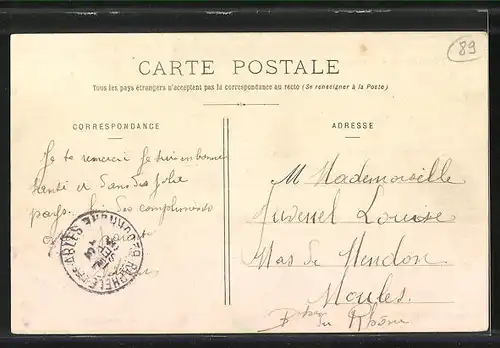 89
CARTE POSTALE
Tous les pays étrangers n'acceptent pas la correspondance au recto (Se renseigner à la Poste)
CORRESPONDANCE
ADRESSE
Je te remerci Je suis en bonne
santé et dans des jolie
pays. bien des compliments
M Mademoiselle
Juvenel Louise
Mas de Vendon
Moules.
Bches du Rhône
RAPHELE ARLES